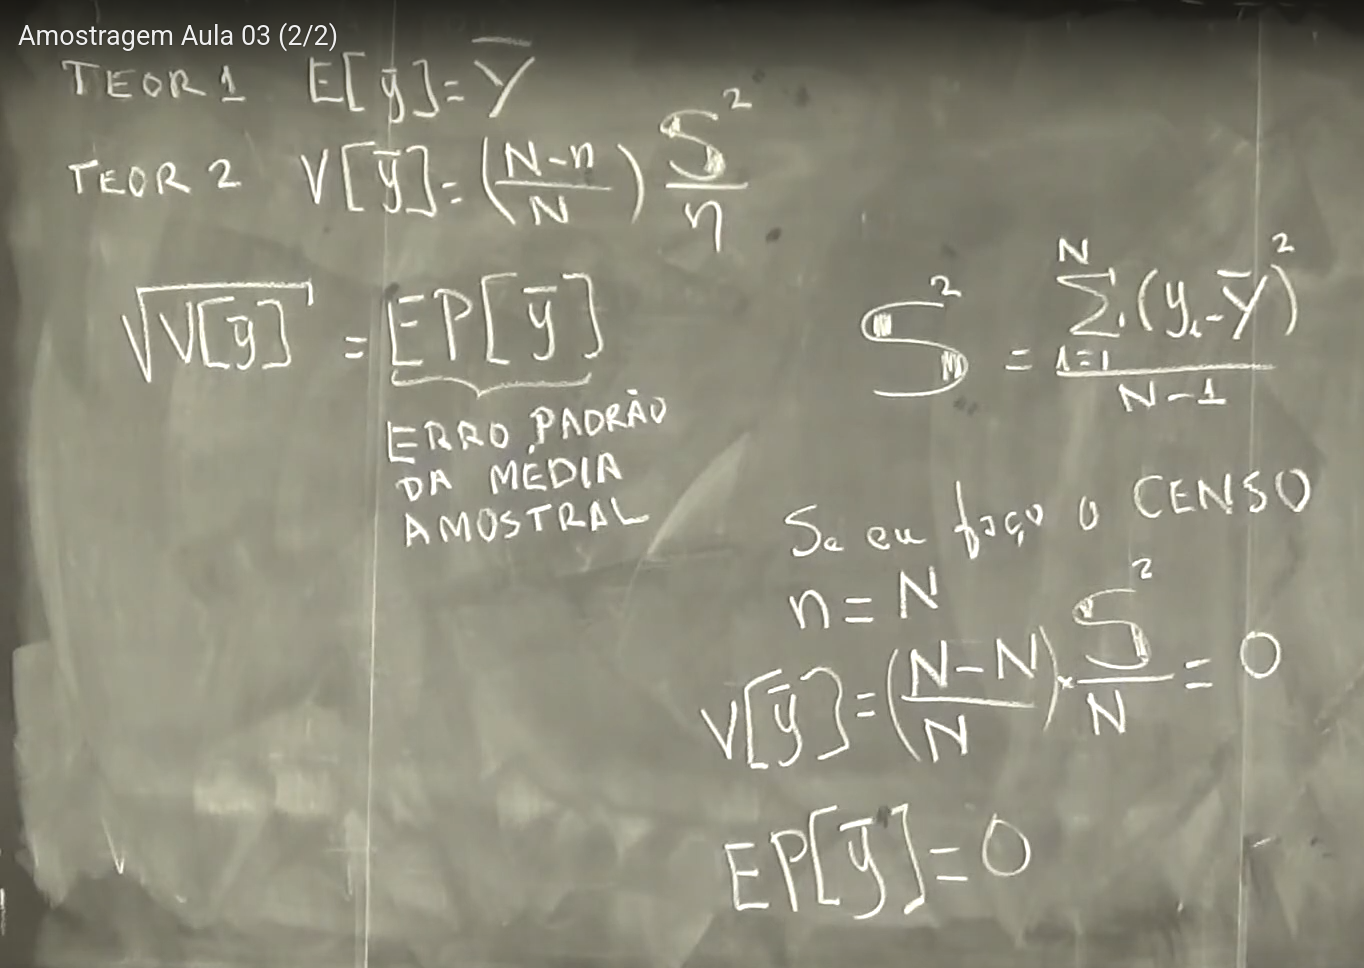 Amostragem Aula 03 (2/2)
TEOR 1 E[ȳ]=Ȳ
TEOR 2 V[ȳ]=((N-n)/N) S²/n
√V[ȳ] = EP[ȳ]
ERRO PADRÃO
DA MÉDIA
AMOSTRAL
S² = Σᵢ₌₁ᴺ (yᵢ-Ȳ)² / (N-1)
Se eu faço o CENSO
n=N
V[ȳ]=((N-N)/N)×S²/N=0
EP[ȳ]=0